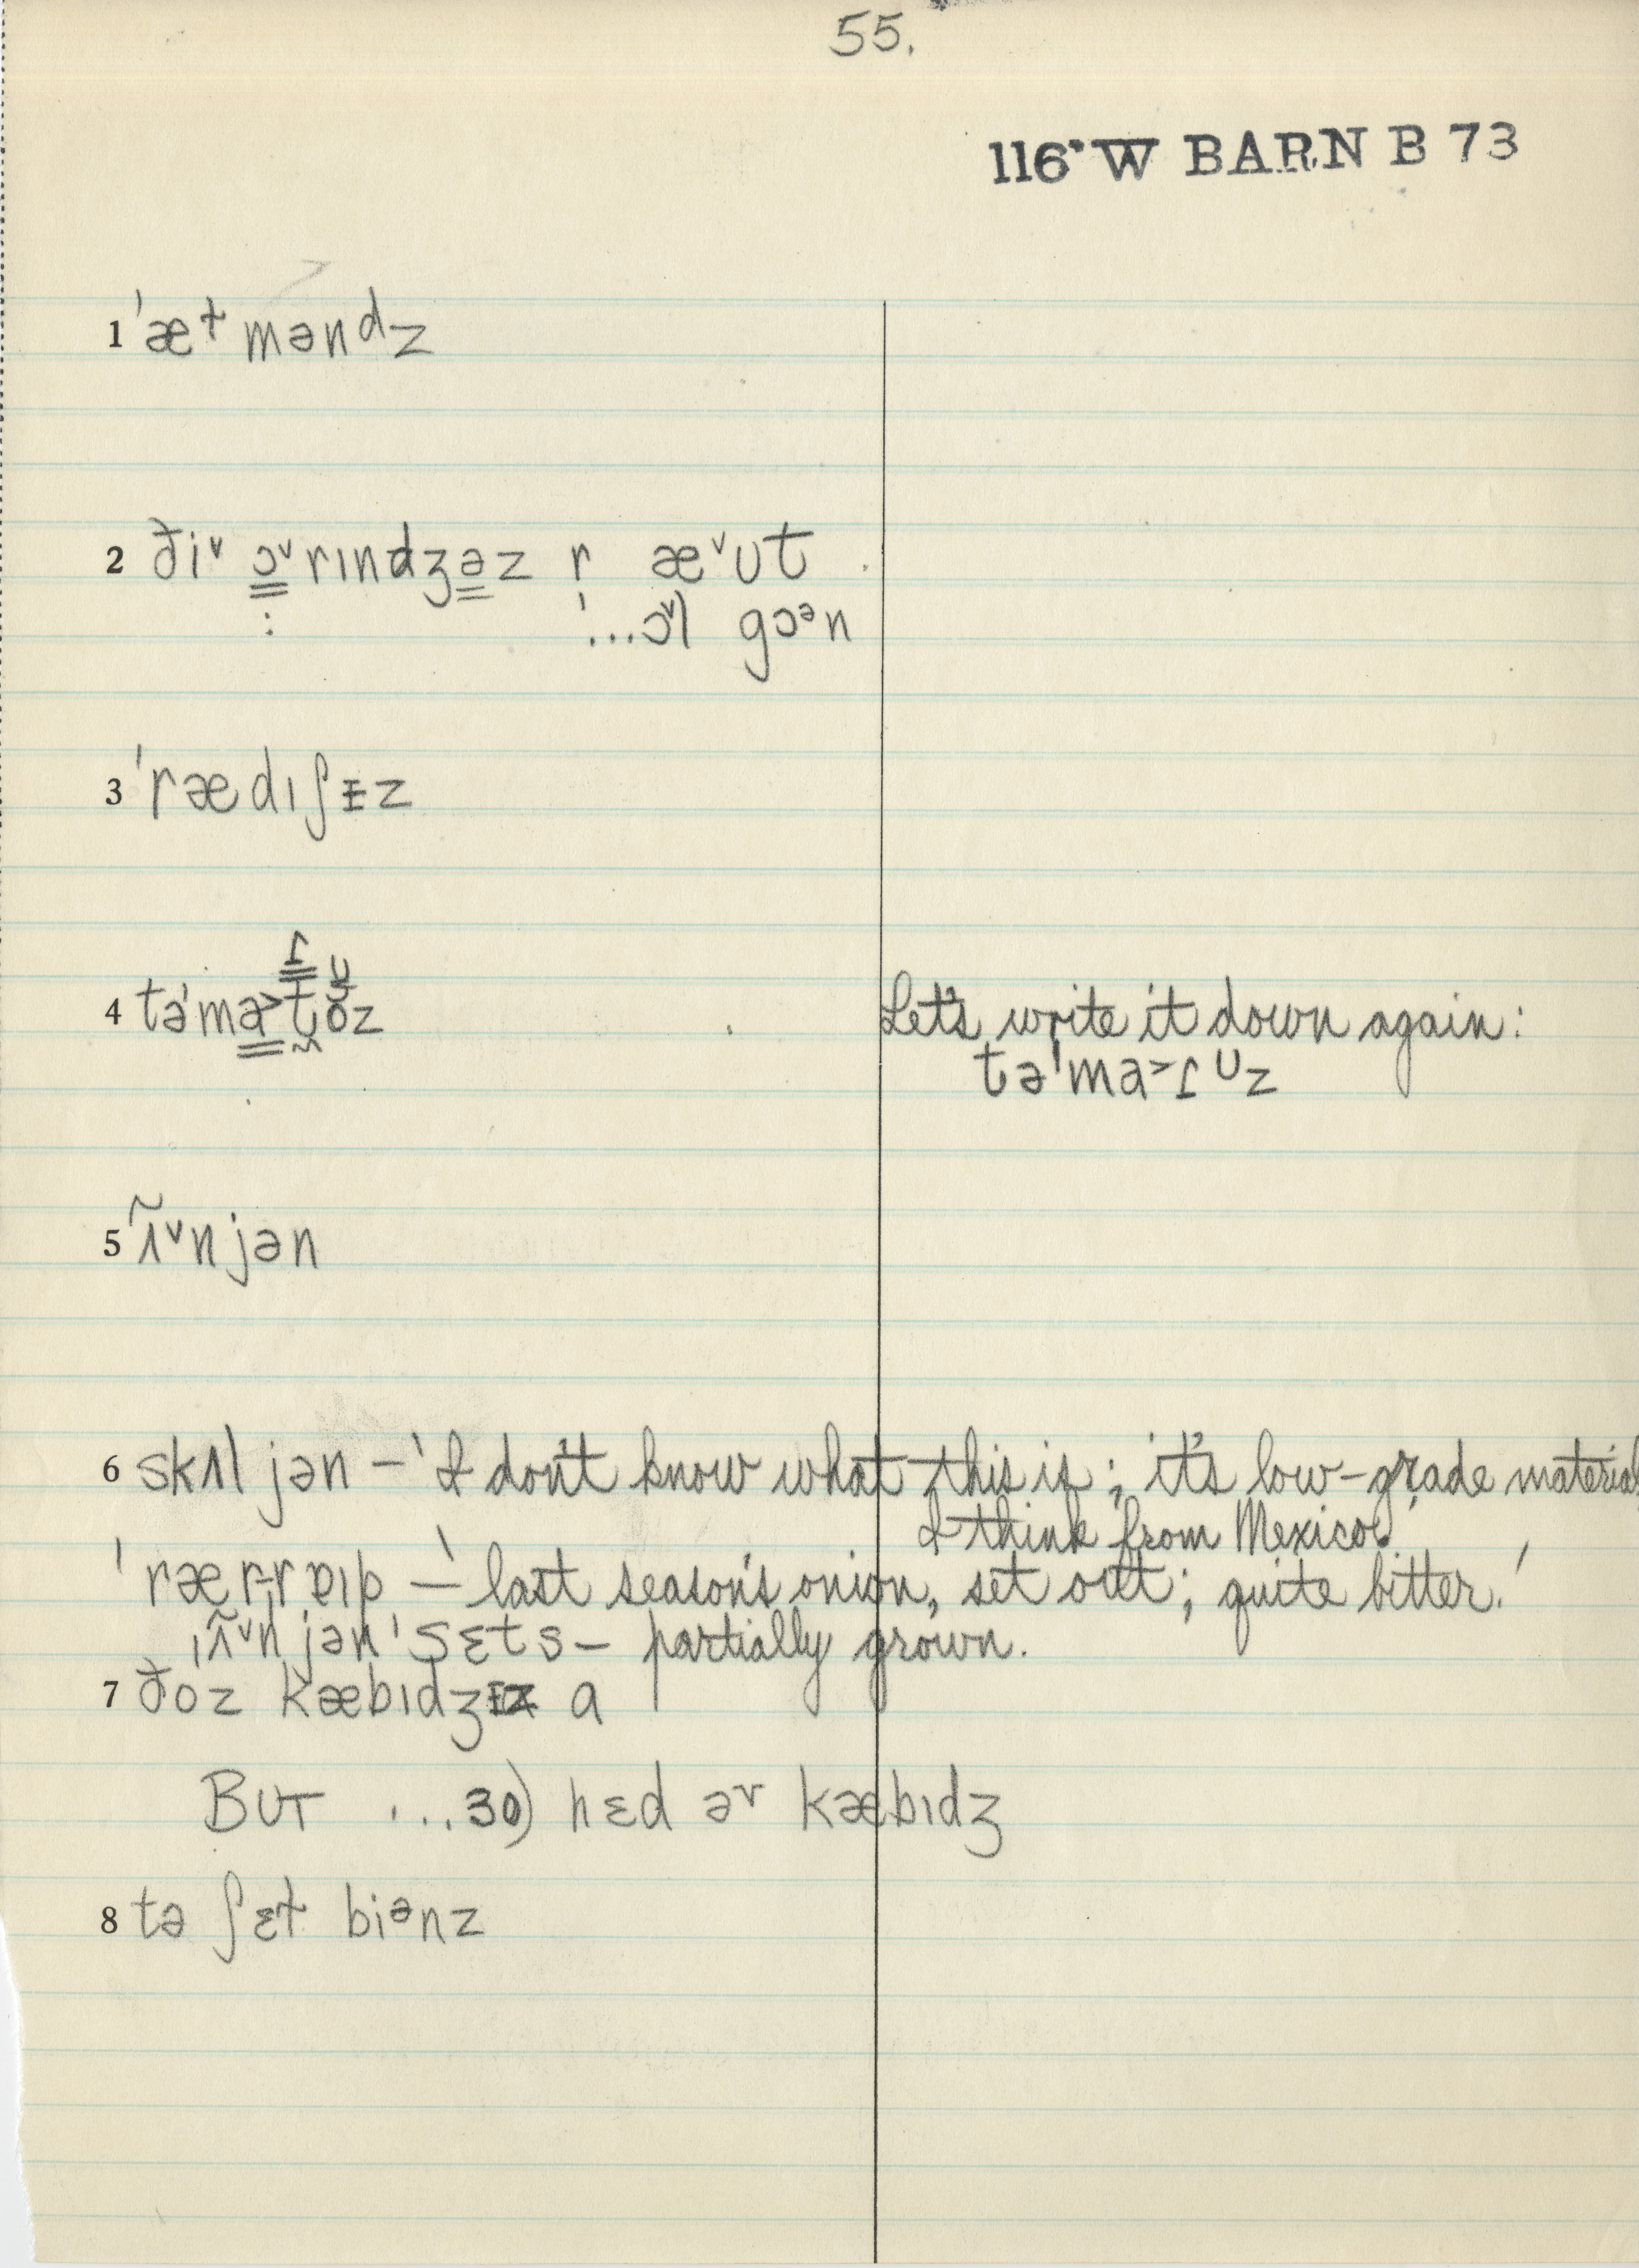 55.
116° W BARN B 73
1 ˈæᵗmənᵈz
2 ði˅ ɔ˅rɪndʒəz r æ˅ʊt
: ˈ...ɔ˅l gɔᵊn
3 ˈrædɪʃɪz
4 təˈma>toz
ɾ ʊ
Let's write it down again:
təˈma>ɾᶸz
5 ʌ̃˅njən
6 skʌljən – 'I don't know what this is; it's low-grade material,
I think from Mexico.'
ˈræɾɪp – 'last season's onion, set out; quite bitter.'
ˌʌ̃˅njənˈsɛts – partially grown.
7 ðoz kæbɪdʒɪz a
BUT ...30) hɛd əv kæbɪdʒ
8 tə ʃɛt biᵊnz